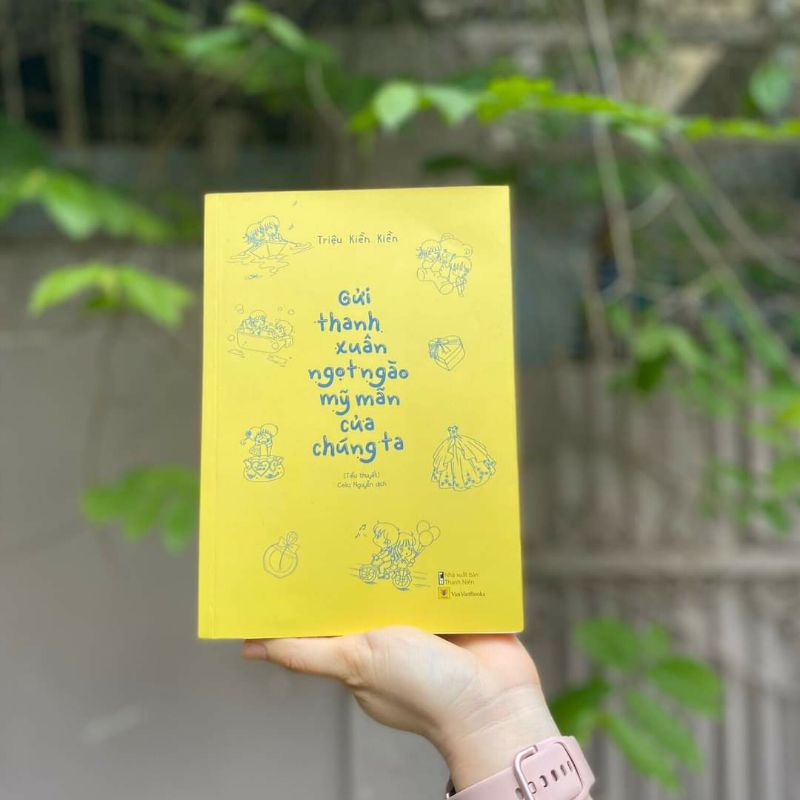 Triệu Kiền Kiền
Gửi
thanh
xuân
ngọt ngào
mỹ mãn
của
chúng ta
(Tiểu thuyết)
Celia Nguyễn dịch
Nhà xuất bản
Thanh Niên
Văn Việt Books